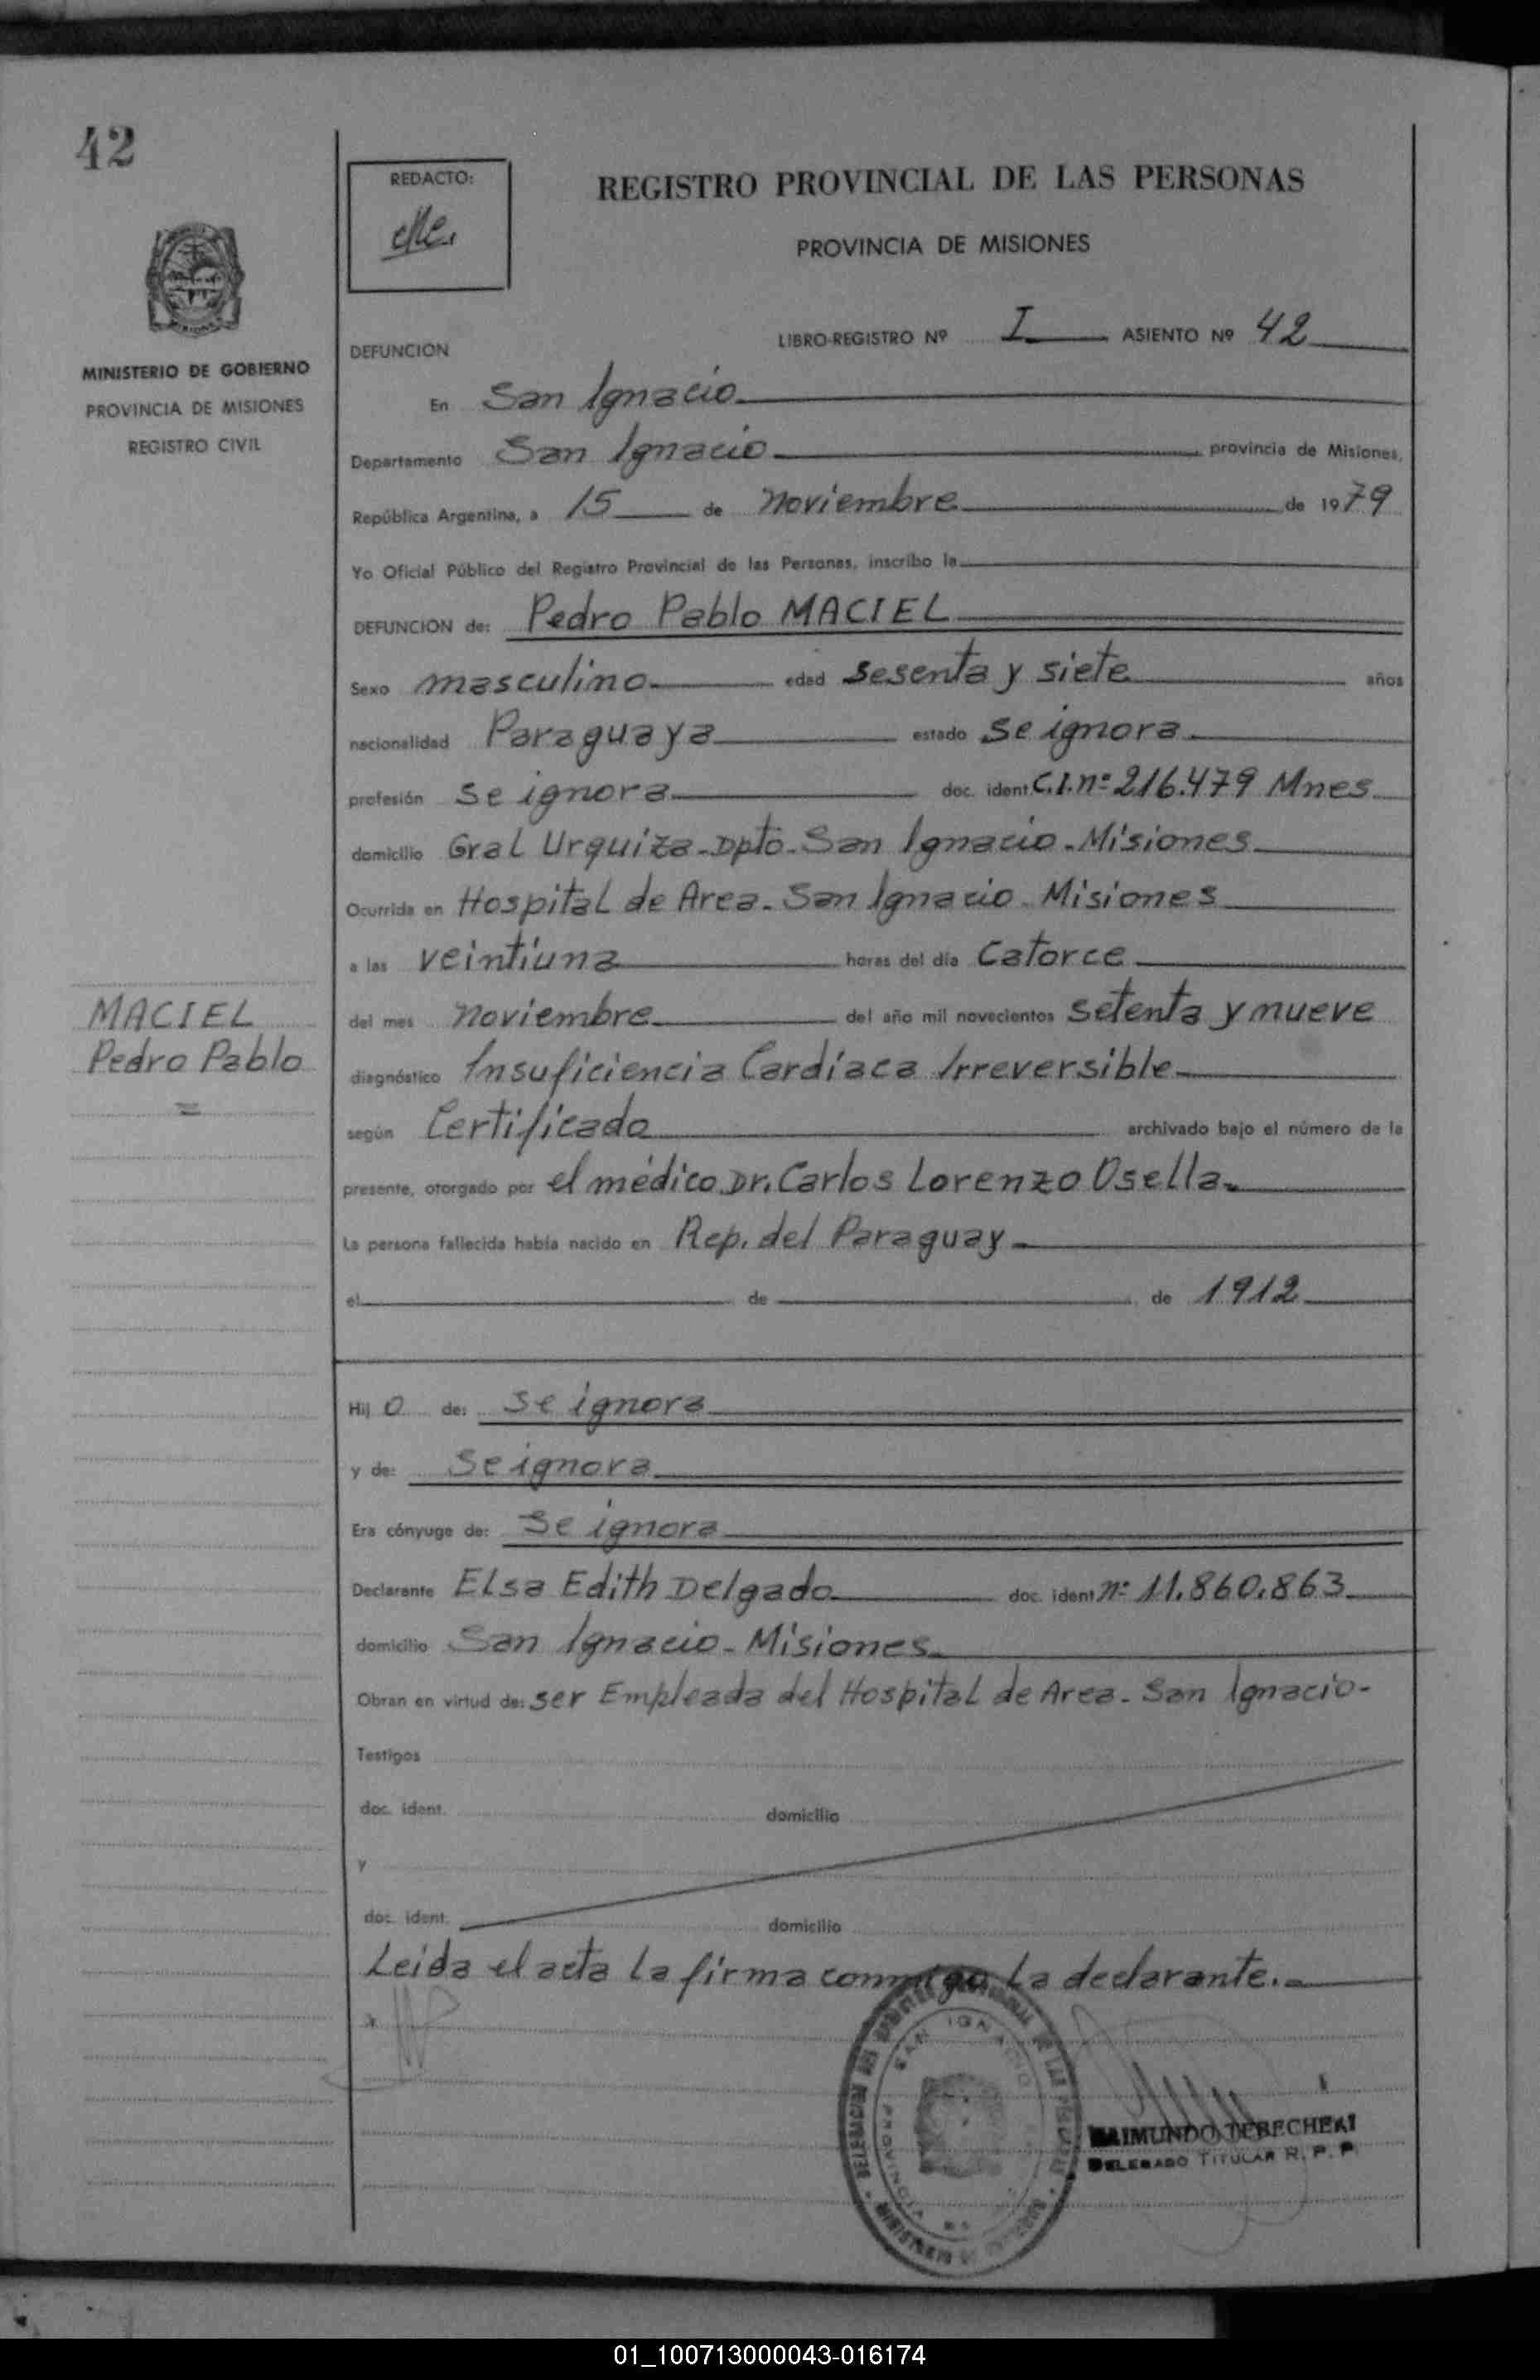 42
REDACTO:
REGISTRO PROVINCIAL DE LAS PERSONAS
PROVINCIA DE MISIONES
MINISTERIO DE GOBIERNO
PROVINCIA DE MISIONES
REGISTRO CIVIL
DEFUNCION
LIBRO-REGISTRO Nº I ASIENTO Nº 42
En San Ignacio
Departamento San Ignacio provincia de Misiones,
República Argentina, a 15 de noviembre de 1979
Yo Oficial Público del Registro Provincial de las Personas, inscribo la
DEFUNCION de: Pedro Pablo MACIEL
Sexo masculino edad sesenta y siete años
nacionalidad Paraguaya estado se ignora
profesión se ignora doc. ident. C.I. nº 216.479 Mnes
domicilio Gral Urquiza - Dpto. San Ignacio - Misiones
Ocurrida en Hospital de Area - San Ignacio - Misiones
a las veintiuna horas del día catorce
del mes noviembre del año mil novecientos setenta y nueve
diagnóstico Insuficiencia Cardíaca Irreversible
según Certificado archivado bajo el número de la
presente, otorgado por el médico Dr. Carlos Lorenzo Osella.
La persona fallecida había nacido en Rep. del Paraguay
el de de 1912
MACIEL
Pedro Pablo
Hij o de: se ignora
y de: se ignora
Era cónyuge de: se ignora
Declarante Elsa Edith Delgado doc. ident. nº 11.860.863
domicilio San Ignacio - Misiones
Obran en virtud de: ser Empleada del Hospital de Area - San Ignacio -
Testigos
doc. ident. domicilio
y
doc. ident. domicilio
Leida el acta la firma conmigo la declarante.
SAN IGNACIO
PROVINCIA
RAIMUNDO TERECHEKI
DELEGADO TITULAR R. P. P.
01_100713000043-016174